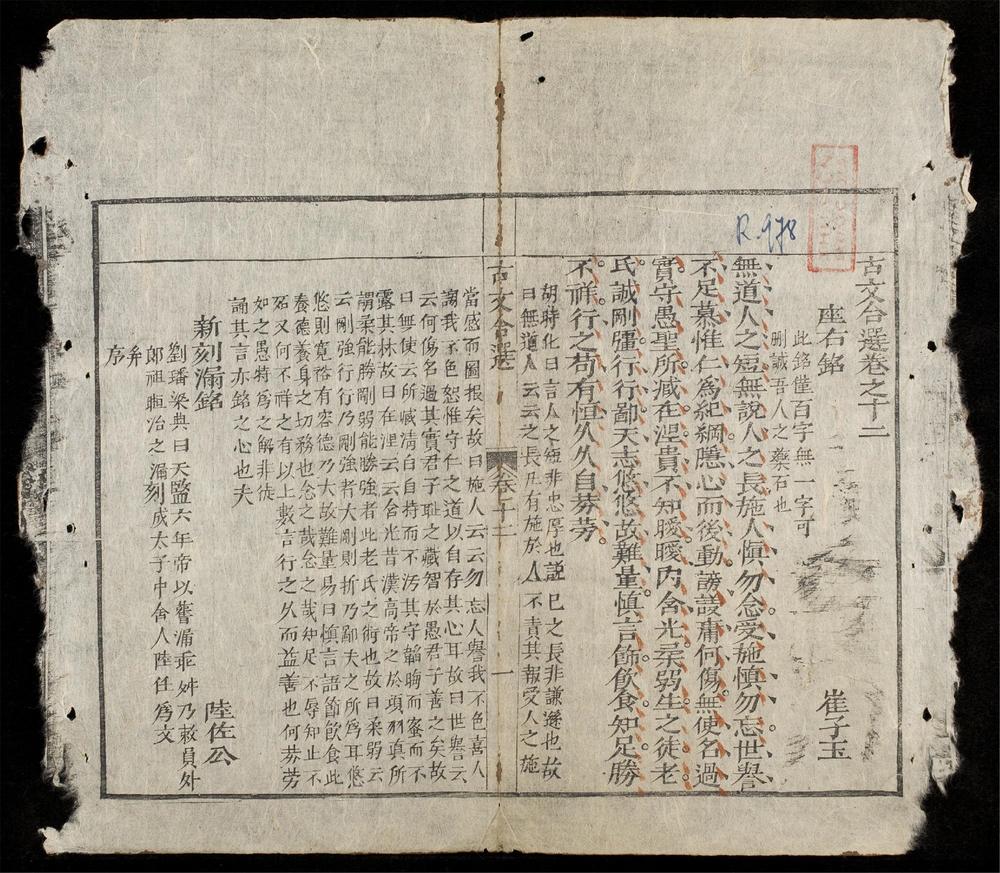 R.978
古文合選卷之十二
座右銘 崔子玉
此銘僅百字無一字可
刪誠吾人之藥石也
無道人之短無說人之長施人慎勿念受施慎勿忘世譽
不足慕惟仁為紀綱隱心而後動謗議庸何傷無使名過
實守愚聖所臧在涅貴不淄曖曖內含光柔弱生之徒老
氏誡剛彊行行鄙夫志悠悠故難量慎言節飲食知足勝
不祥行之苟有恒久久自芬芳
胡時化曰言人之短非忠厚也説己之長非謙遜也故
曰無道人云云之長凡有施於人不責其報受人之施
古文合選 卷十二 一
當感而圖報矣故曰施人云云勿忘人譽我不色喜人
謗我不色恕惟守仁之道以自存其心耳故曰世譽云
云何傷名過其實君子耻之藏智於愚君子善之矣故
曰無使云所臧清白自持而不汚其守韜晦而不
露其故曰在涅云云含光昔漢高帝之於項羽真所
謂柔能勝剛弱能勝強者此老氏之術也故曰柔弱云
云剛強行行乃剛強者大剛則折乃鄙夫之所為耳悠
悠則寬裕有容德乃大故難量易曰慎言語節飲食此
養德養身之切務也念之哉念之哉知足不辱知止不
殆又何不祥之有以上數言行之久而益善也何芬芳
如之愚特為之解非徒
誦其言亦銘之心也夫
新刻漏銘 陸佐公
劉璠梁典曰天監六年帝以舊漏乖舛乃敕員外
郎祖暅冶之漏刻成太子中舍人陸倕為文
并
序